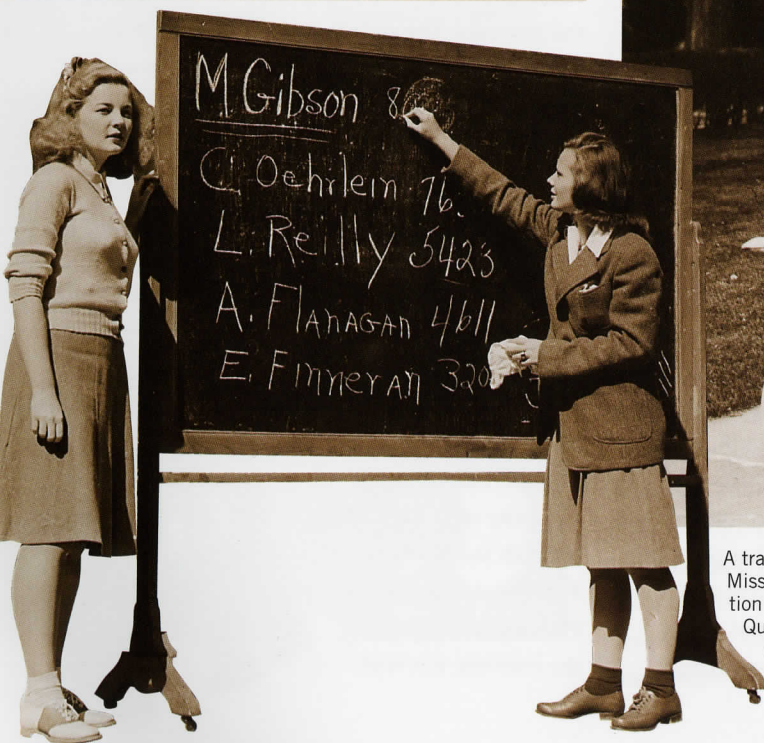 M. Gibson 8
C. Oehrlein 76.
L. Reilly 5423
A. Flanagan 4611
E. Finneran 320
A tra
Miss
tion
Qu